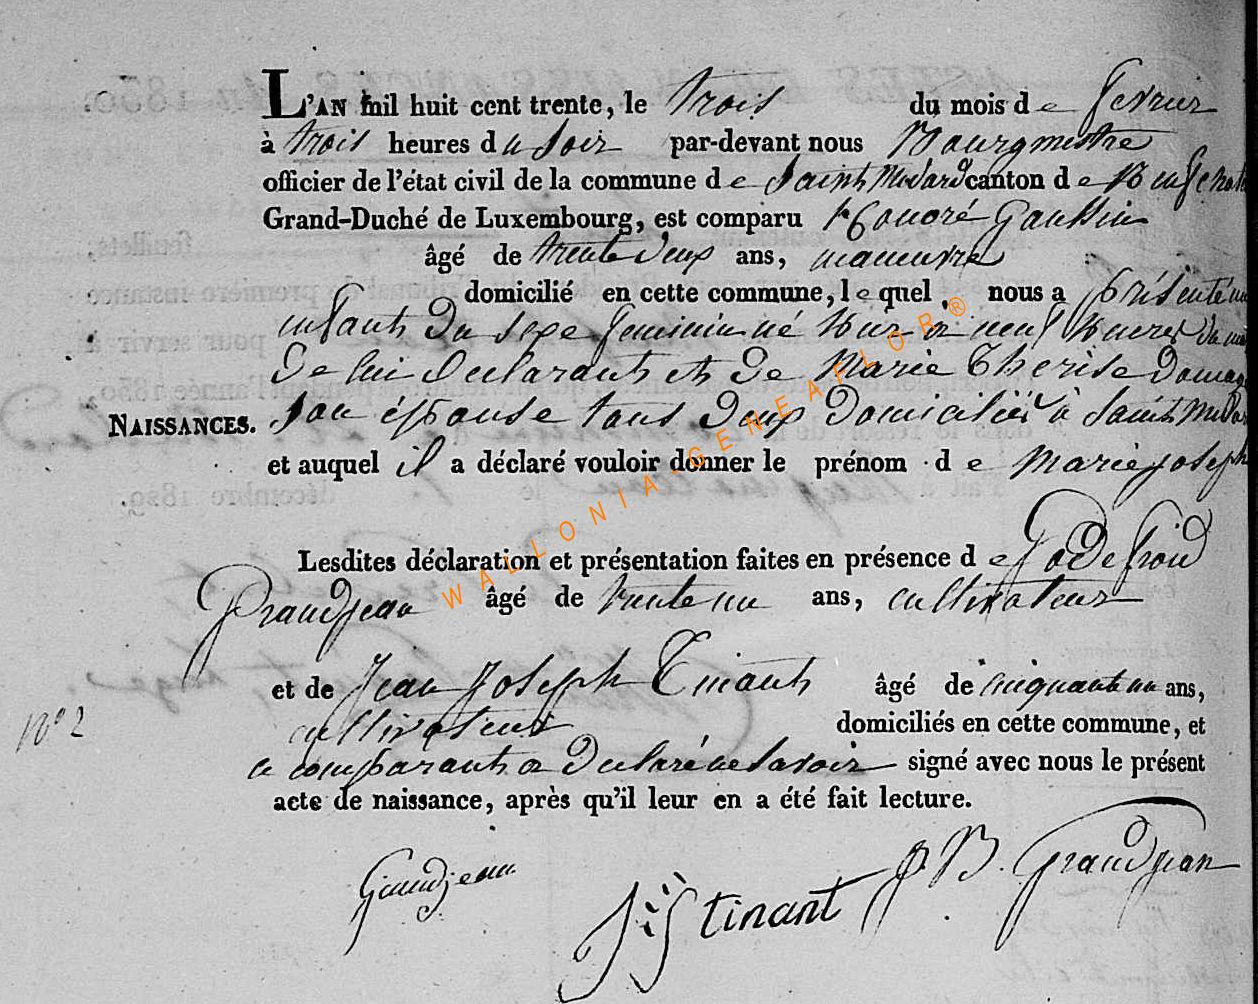 L'AN mil huit cent trente, le trois du mois de fevrier
à trois heures du soir par-devant nous Bourgmestre
officier de l'état civil de la commune de Saint Medard canton de
Grand-Duché de Luxembourg, est comparu honoré
âgé de trente deux ans, maneuvre
domicilié en cette commune, lequel, nous a présenté un
enfant du sexe feminin né hier a neuf heures du
de lui declarant et de Marie Therese
NAISSANCES. son épouse tous deux domiciliés à Saint Medar
et auquel il a déclaré vouloir donner le prénom de Marie joseph
Lesdites déclaration et présentation faites en présence de Godefroid
Grandjean âgé de trente un ans, cultivateur
et de Jean Joseph Tinant âgé de cinquante un ans,
N° 2
cultivateur domiciliés en cette commune, et
le comparant a declaré ne savoir signé avec nous le présent
acte de naissance, après qu'il leur en a été fait lecture.
Grandjean
JJ tinant
JB. Grandjean
WALLONIA-GENEAFLOR®